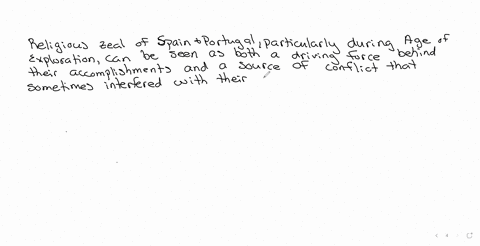 Religious zeal of Spain & Portugal, particularly during Age of
Exploration, can be seen as both a driving force behind
their accomplishments and a source of conflict that
sometimes interfered with their